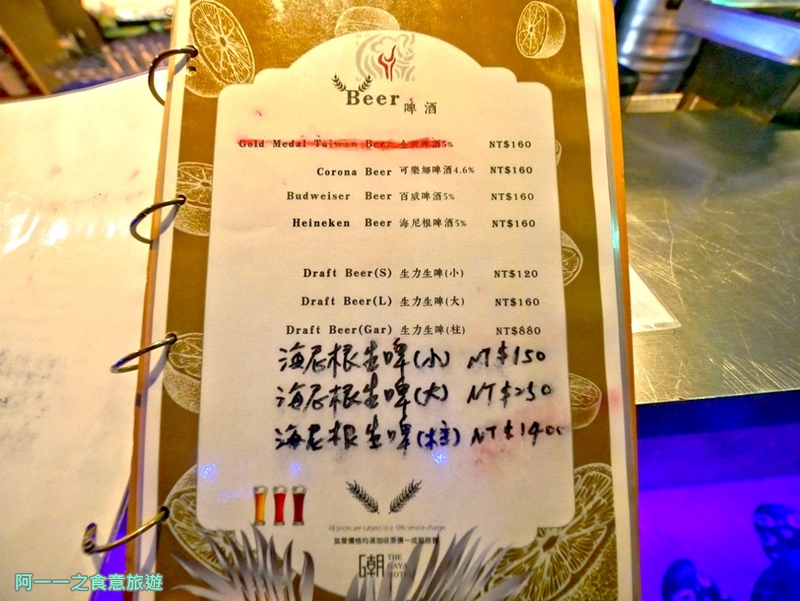 Beer 啤酒
Gold Medal Taiwan Beer 金牌啤酒5% NT$160
Corona Beer 可樂娜啤酒4.6% NT$160
Budweiser Beer 百威啤酒5% NT$160
Heineken Beer 海尼根啤酒5% NT$160
Draft Beer(S) 生力生啤(小) NT$120
Draft Beer(L) 生力生啤(大) NT$160
Draft Beer(Gar) 生力生啤(柱) NT$880
海尼根生啤(小) NT$150
海尼根生啤(大) NT$250
海尼根生啤(柱) NT$1400
All prices are subject to a 10% service charge.
菜單價格均須加收原價一成服務費
潮 THE GAYA HOTEL
阿一一之食意旅遊